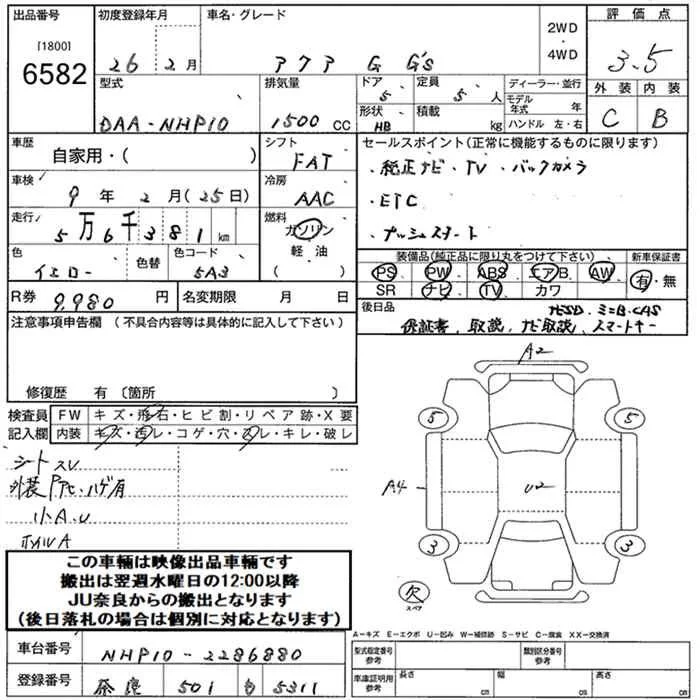 出品番号
[1800]
6582
初度登録年月
26年2月
車名・グレード
アクア G G's
2WD
・
4WD
評価点
3.5
型式
DAA-NHP10
排気量
1500 CC
ドア
5
定員
5人
形状
HB
積載
kg
ディーラー・並行
モデル年式 年
ハンドル 左・右
外装 内装
C B
車歴
自家用・( )
シフト
FAT
車検
9年2月(25日)
冷房
AAC
走行
5万6千381km
燃料
ガソリン
軽油
( )
色
イエロー
色替
色コード
5A3
R券 9,980円
名変期限 月 日
セールスポイント(正常に機能するものに限ります)
・純正ナビ・TV・バックカメラ
・ETC
・プッシュスタート
装備品(純正品に限り丸をつけて下さい)
新車保証書
PS PW ABS エアB. AW
SR ナビ TV カワ
有・無
後日品
保証書、取説、ナビ取説、スマートキー
注意事項申告欄 (不具合内容等は具体的に記入して下さい)
修復歴 有〔箇所 〕
検査員
記入欄
FW キズ・飛石・ヒビ割・リペア跡・X要
内装 キズ・汚レ・コゲ・穴・スレ・キレ・破レ
シート スレ
小A.U
ホイルA
A2
5 5
A4 U2
3 3
欠
スペア
この車輌は映像出品車輌です
搬出は翌週水曜日の12:00以降
JU奈良からの搬出となります
(後日落札の場合は個別に対応となります)
車台番号 NHP10-2286880
登録番号 奈良 501 5311
A−キズ E−エクボ U−凹み W−補修跡 S−サビ C−腐食 XX−交換済
型式指定番号
参考
類別区分番号
参考
車庫証明用
参考
長さ cm
幅 cm
高さ cm